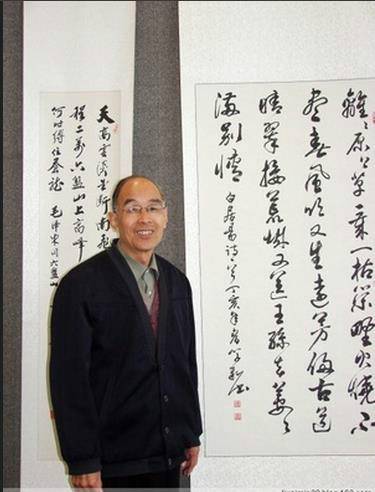 離〻原上草一歲一枯榮野火燒不
盡春風吹又生遠芳侵古道
晴翠接荒城又送王孫去萋〻
滿別情
白居易詩一首丁亥年
天高雲淡望斷南飛
程二萬六盤山上高峰
何時縛住蒼龍 毛澤東詞六盤山